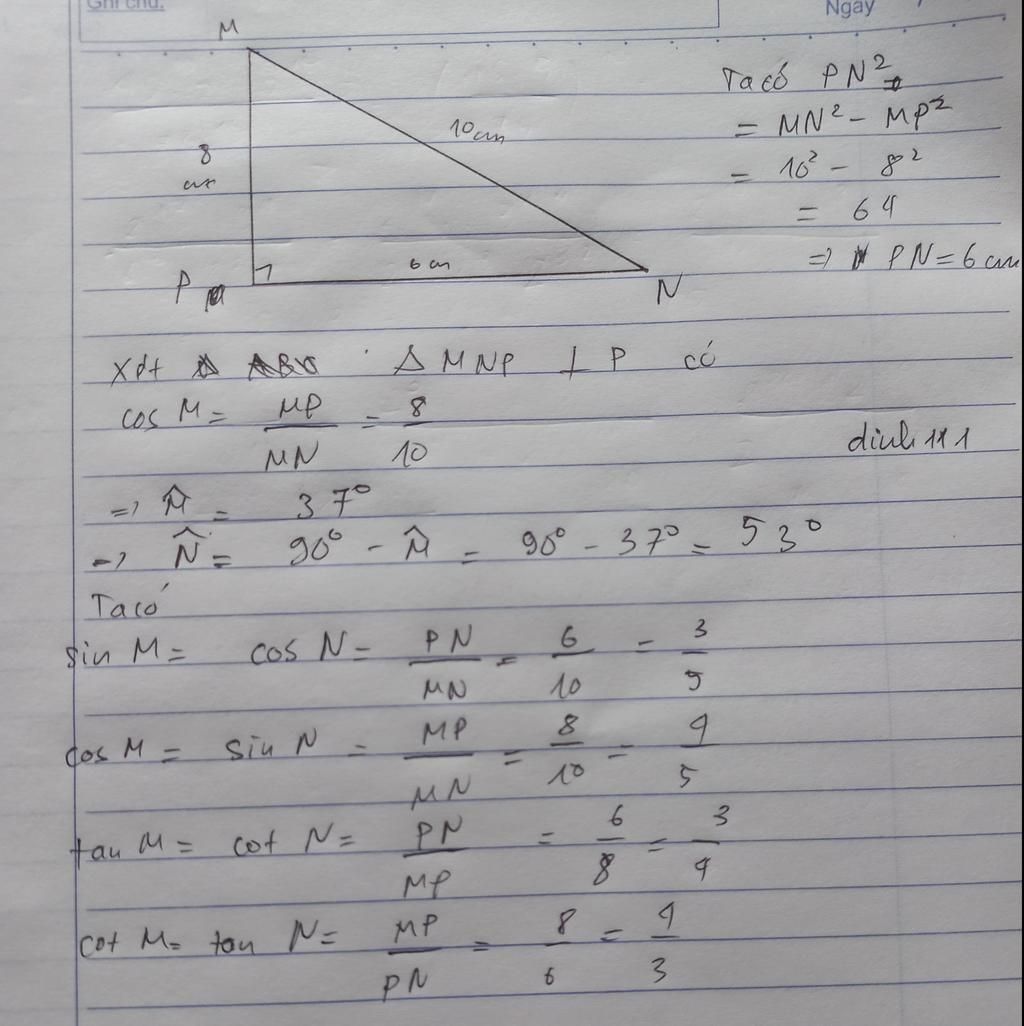 Ghi chú:
Ngày
M
8
cm
10cm
6 cm
P
N
Ta có PN²
= MN² - MP²
= 10² - 8²
= 64
=> PN = 6 cm
Xét Δ MNP ⊥ P có
cos M = MP/MN = 8/10
=> M̂ = 37°
=> N̂ = 90° - M̂ = 90° - 37° = 53°
Ta có
sin M = cos N = PN/MN = 6/10 = 3/5
cos M = sin N = MP/MN = 8/10 = 4/5
tan M = cot N = PN/MP = 6/8 = 3/4
cot M = tan N = MP/PN = 8/6 = 4/3